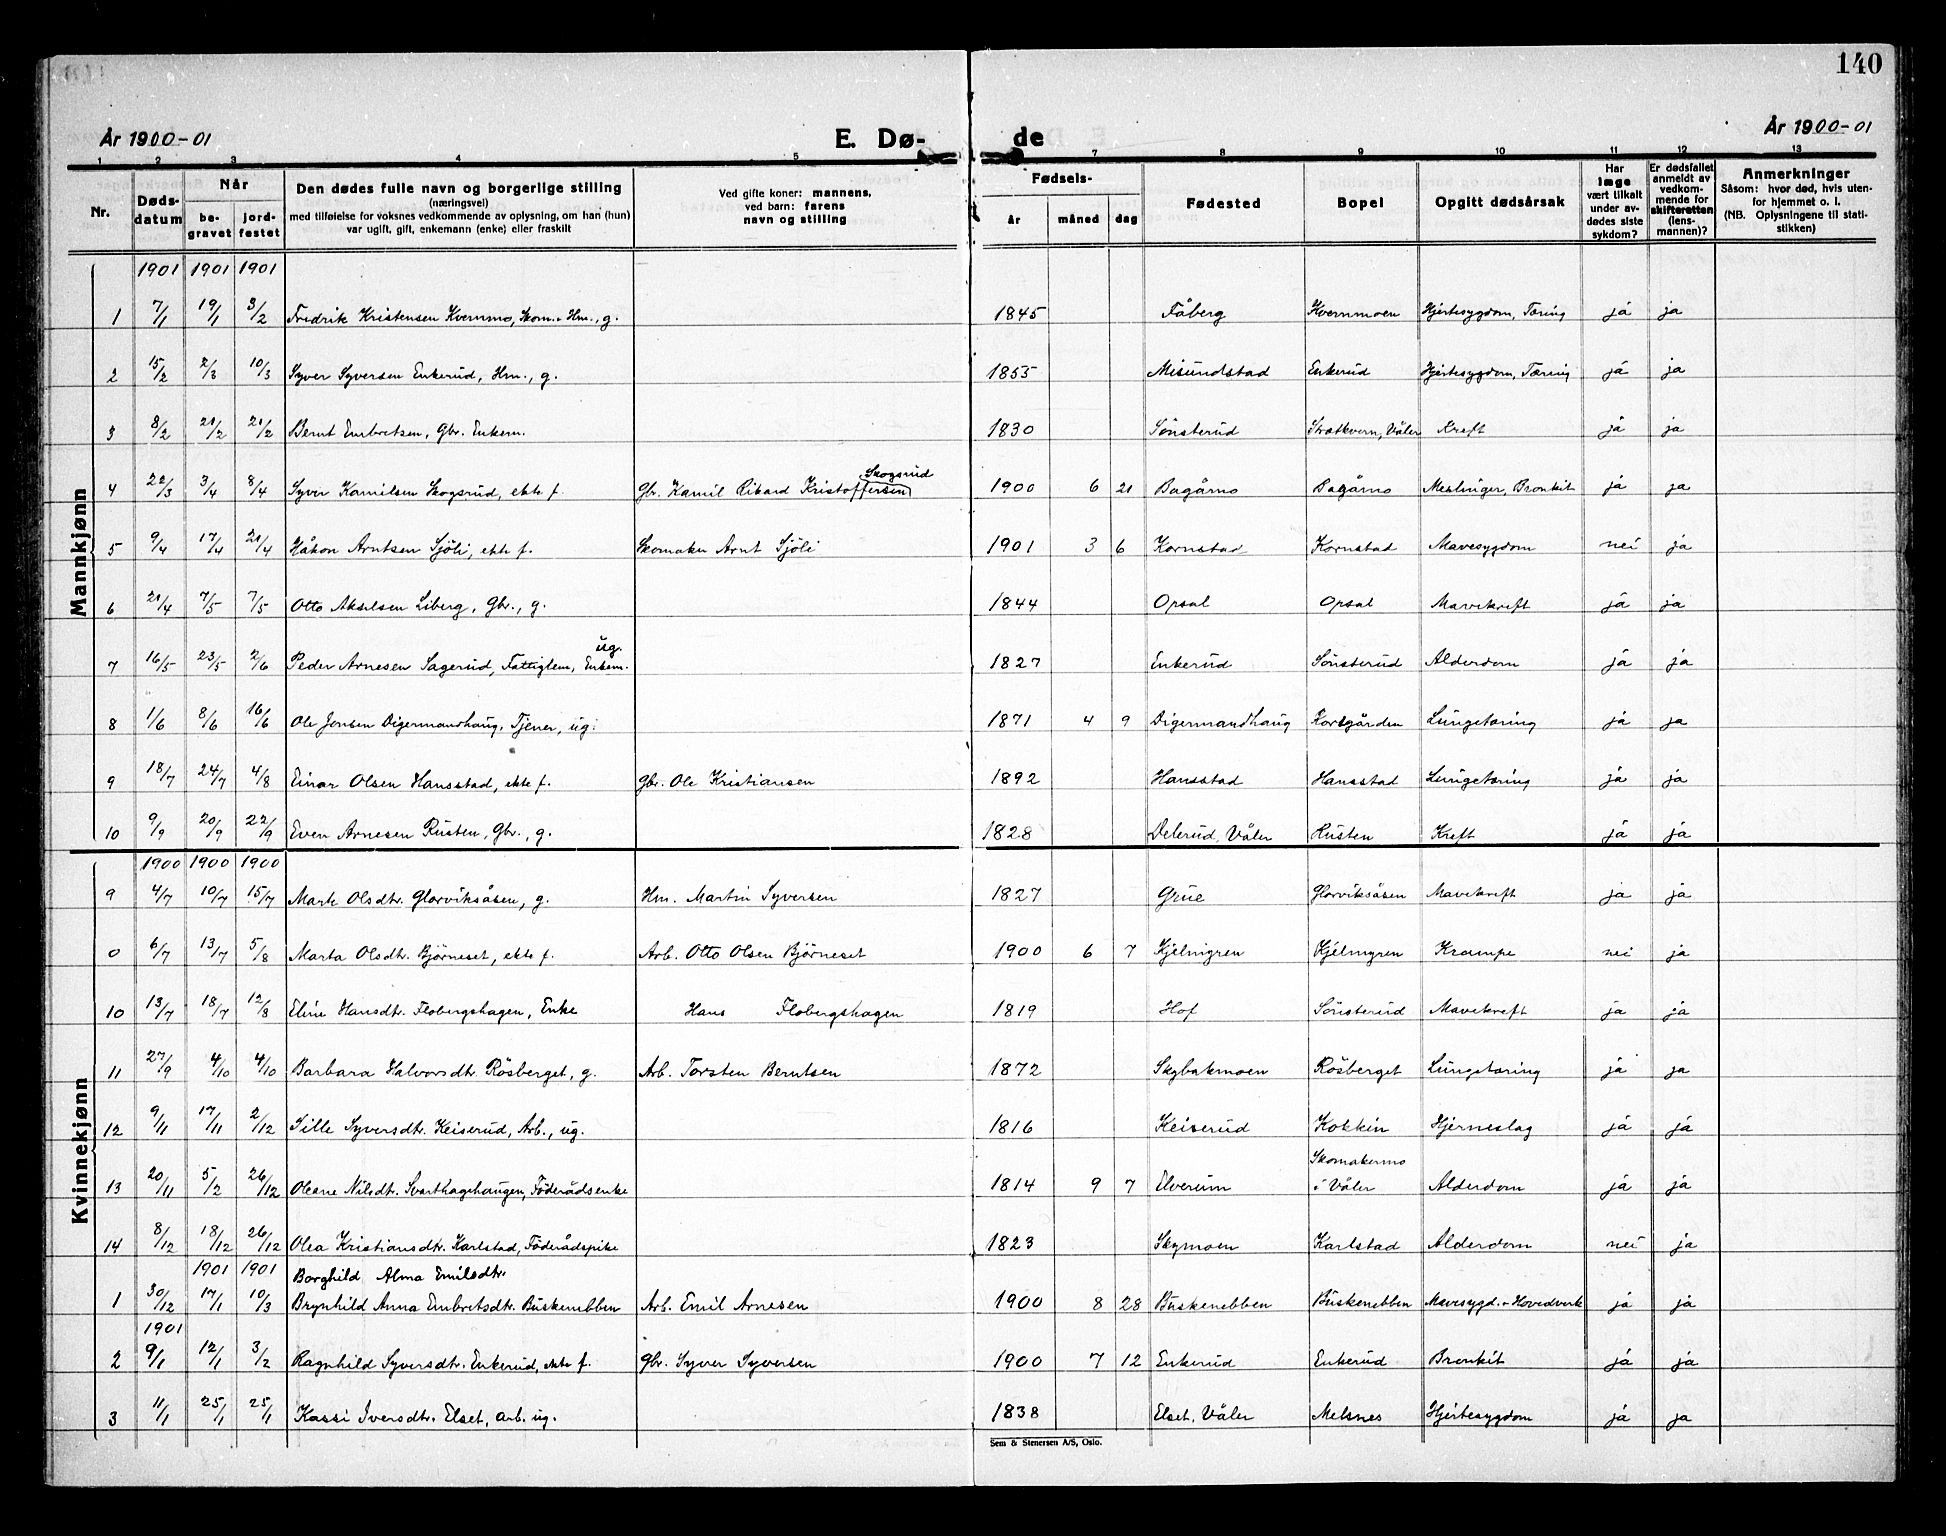 140
År 1900-01
E. Dø-
de
År 1900-01
1 2 3 4 5 7 8 9 10 11 12 13
Nr.
Døds-
datum
Når
be-
gravet
jord-
festet
Den dødes fulle navn og borgerlige stilling
(næringsvei)
med tilføielse for voksnes vedkommende av oplysning, om han (hun)
var ugift, gift, enkemann (enke) eller fraskilt
Ved gifte koner: mannens,
ved barn: farens
navn og stilling
Fødsels-
år måned dag
Fødested
Bopel
Opgitt dødsårsak
Har
læge
vært tilkalt
under av-
dødes siste
sykdom?
Er dødsfallet
anmeldt av
vedkom-
mende for
skifteretten
(lens-
mannen)?
Anmerkninger
Såsom: hvor død, hvis uten-
for hjemmet o. l.
(NB. Oplysningene til stati-
stikken)
Mannkjønn
1901 1901 1901
1 7/1 19/1 3/2 Fredrik Kristensen Kvernmo, Skom. Hm., g. 1845 Fåberg Kvernmoen Hjertesygdom, Tæring ja ja
2 15/2 2/3 10/3 Syver Syversen Enkerud, Hm., g. 1855 Misundstad Enkerud Hjertesygdom, Tæring ja ja
3 8/2 21/2 21/2 Bernt Embretsen, Gbr. Enkem. 1830 Sønsterud Strætkvern, Våler Kreft ja ja
Skogsrud
4 22/3 3/4 8/4 Syver Kamilsen Skogsrud, ekte f. Gbr. Kamil Rikard Kristoffersen 1900 6 21 Bagårmo Bagårmo Meslinger, Bronkit ja ja
5 9/4 17/4 21/4 Håkon Arntsen Sjöli, ekte f. Skomaker Arnt Sjöli 1901 3 6 Kornstad Kornstad Mavesygdom nei ja
6 21/4 7/5 7/5 Otto Akselsen Liberg, Gbr., g. 1844 Opsal Opsal Mavekreft ja ja
ug.
7 16/5 23/5 2/6 Peder Arnesen Sagerud, Fattiglem, Enkem. 1827 Enkerud Sönsterud Alderdom ja ja
8 1/6 8/6 16/6 Ole Jonsen Digermandhaug, Tjener, ug. 1871 4 9 Digermandhaug Korsgården Lungetæring ja ja
9 18/7 24/7 4/8 Einar Olsen Hansstad, ekte f. Gbr. Ole Kristiansen 1892 Hansstad Hansstad Lungetæring ja ja
10 9/9 20/9 22/9 Even Arnesen Rusten, Gbr., g. 1828 Delerud, Våler Rusten Kreft ja ja
Kvinnekjønn
1900 1900 1900
9 4/7 10/7 15/7 Marte Olsdtr. Glorviksåsen, g. Hm. Martin Syversen 1827 Grue Glorviksåsen Mavekreft ja ja
0 6/7 13/7 5/8 Marta Olsdtr. Bjørneset, ekte f. Arb. Otto Olsen Bjørneset 1900 6 7 Kjelmyren Kjelmyren Krampe nei ja
10 13/7 18/7 12/8 Eline Hansdtr. Flobergshagen, Enke Hans Flobergshagen 1819 Hof Sönsterud Mavekreft ja ja
11 27/9 4/10 4/10 Barbara Halvorsdtr. Rösberget, g. Arb. Torsten Berntsen 1872 Skybakmoen Rösberget Lungetæring ja ja
12 9/11 17/11 2/12 Sille Syversdtr. Keiserud, Arb., ug. 1816 Keiserud Kokkin Hjerneslag ja ja
Skomakermo
13 20/11 5/2 26/12 Oleane Nilsdtr. Svarthagehaugen, Föderådsenke 1814 9 7 Elverum i Våler Alderdom ja ja
14 8/12 18/12 26/12 Olea Kristiansdtr. Karlstad, Föderådspike 1823 Skymoen Karlstad Alderdom nei ja
1901 1901 Borghild Alma Emilsdtr.
1 30/12 17/1 10/3 Brynhild Anna Embretsdtr. Buskenebben Arb. Emil Arnesen 1900 8 28 Buskenebben Buskenebben Mavesygd. + Hovedverk ja ja
1901
2 9/1 12/1 3/2 Ragnhild Syversdtr. Enkerud, ekte f. Gbr. Syver Syversen 1900 7 12 Enkerud Enkerud Bronkit ja ja
3 11/1 25/1 25/1 Kassi Iversdtr. Elset, arb. ug. 1838 Elset, Våler Melsnes Hjertesygdom ja ja
Sem & Stenersen A/S, Oslo.